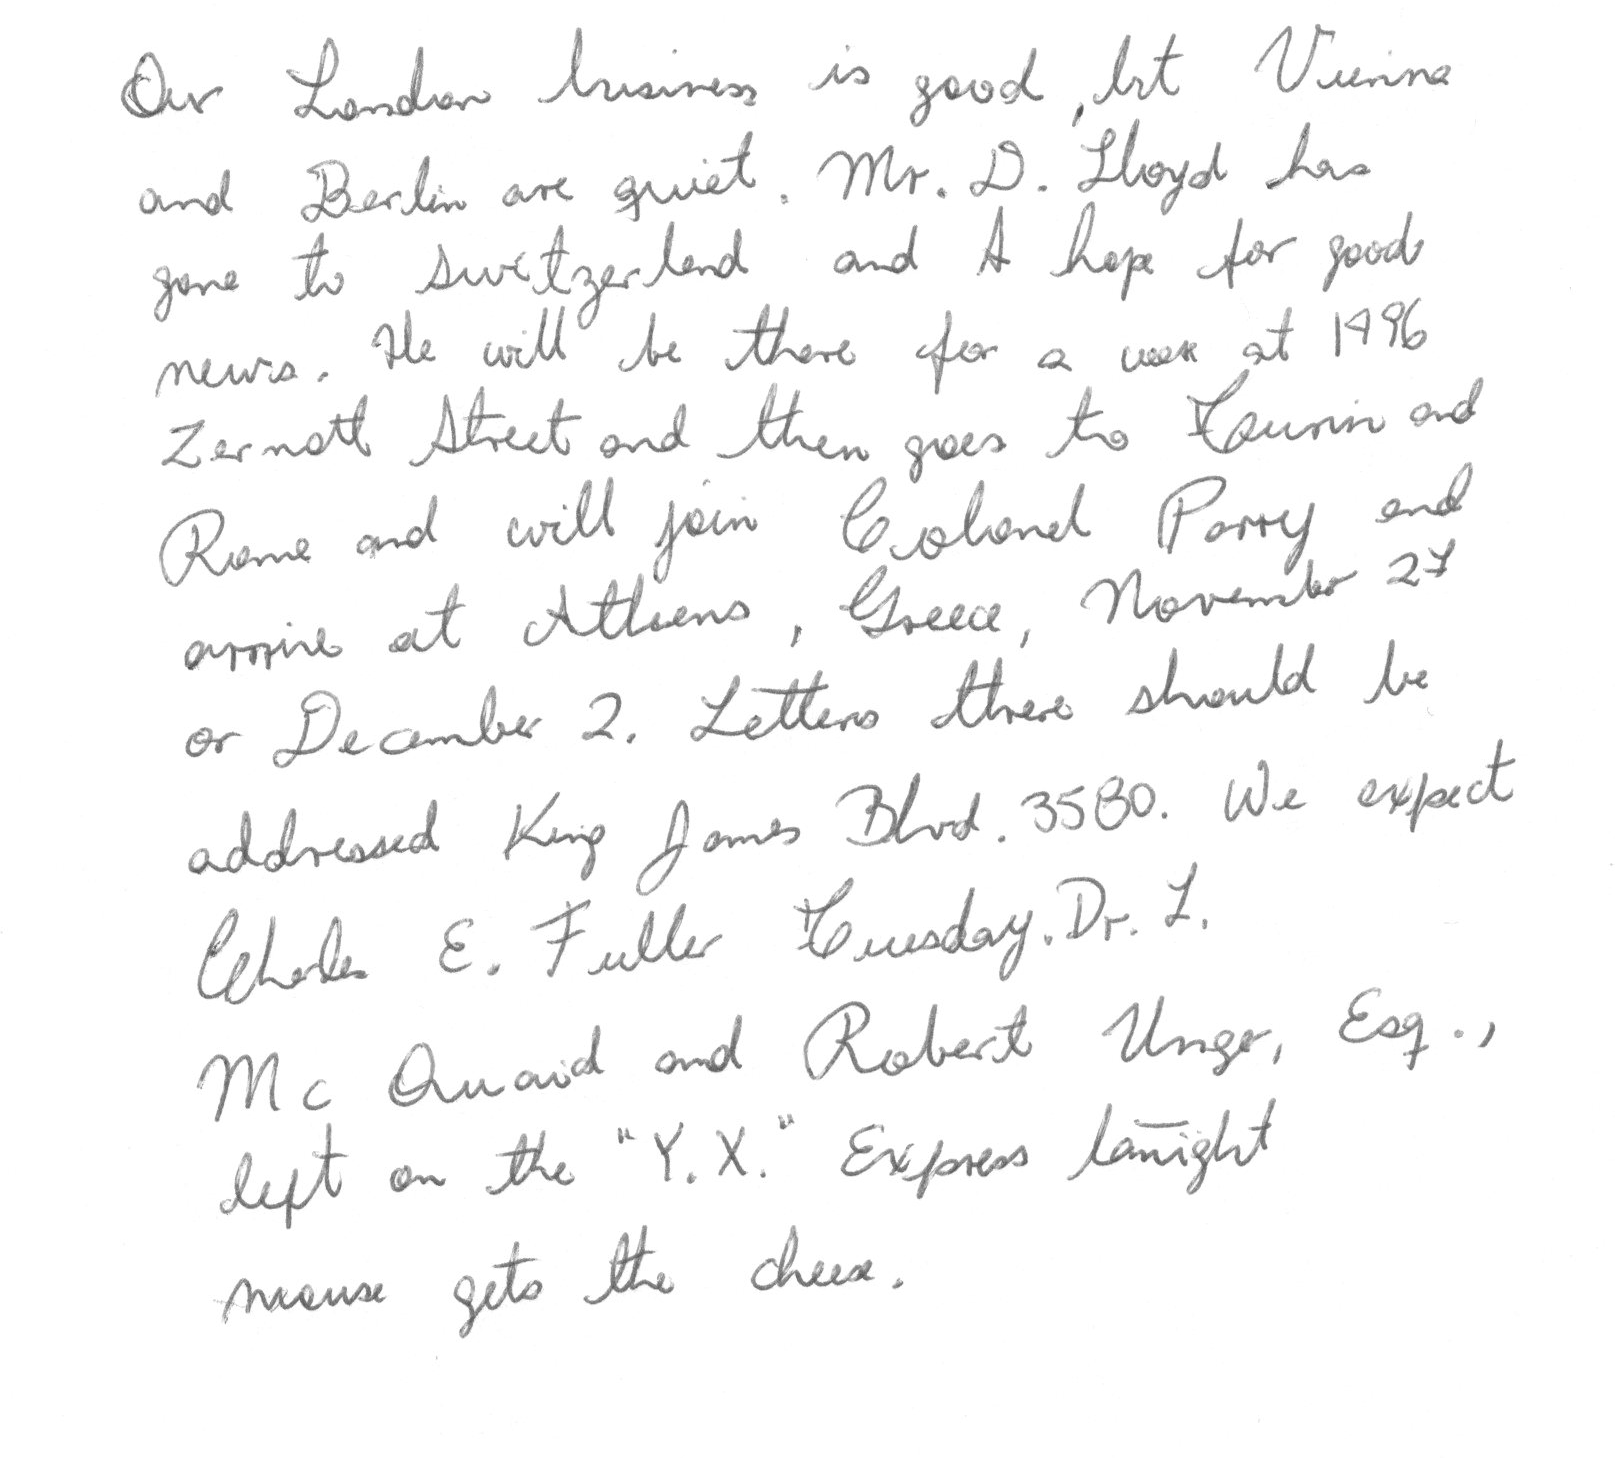 Our London business is good, but Vienna
and Berlin are quiet. Mr. D. Lloyd has
gone to Switzerland and I hope for good
news. He will be there for a week at 1496
Zermott Street and then goes to Turin and
Rome and will join Colonel Parry and
arrive at Athens, Greece, November 27
or December 2. Letters there should be
addressed King James Blvd. 3580. We expect
Charles E. Fuller Tuesday. Dr. L.
Mc Quaid and Robert Unger, Esq.,
left on the "Y.X." Express tonight
mouse gets the cheese.